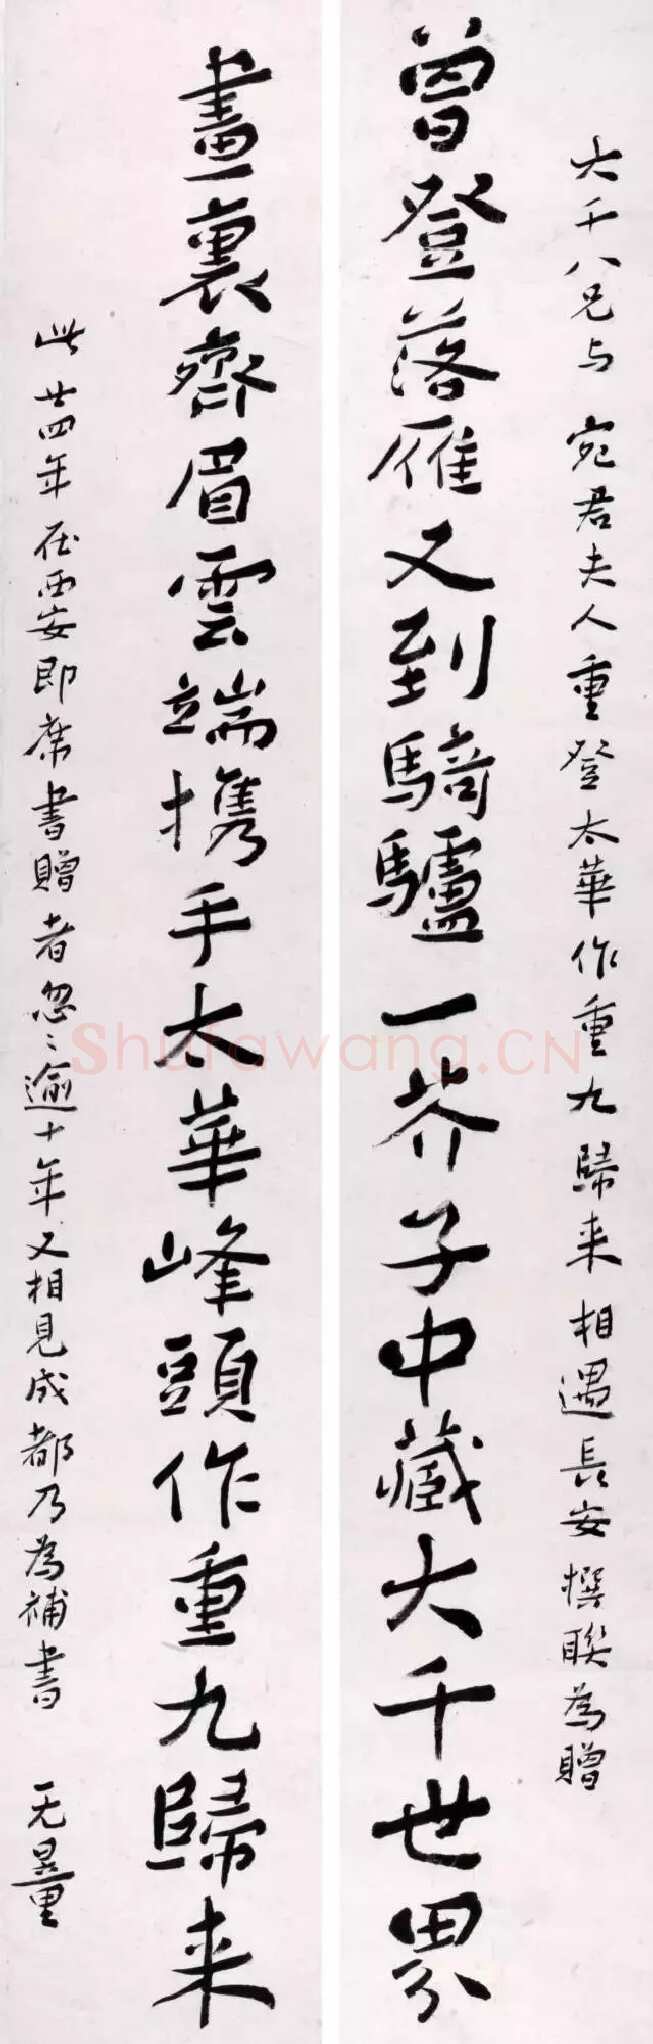 大千八兄与 宛君夫人重登太華作重九歸来相遇長安撰联為贈
曾登落雁又到騎驢一芥子中藏大千世界
畫裏齊眉雲端攜手太華峰頭作重九歸来
此廿四年在西安即席書贈者忽〻逾十年又相見成都乃為補書 无量
Shufawang.CN